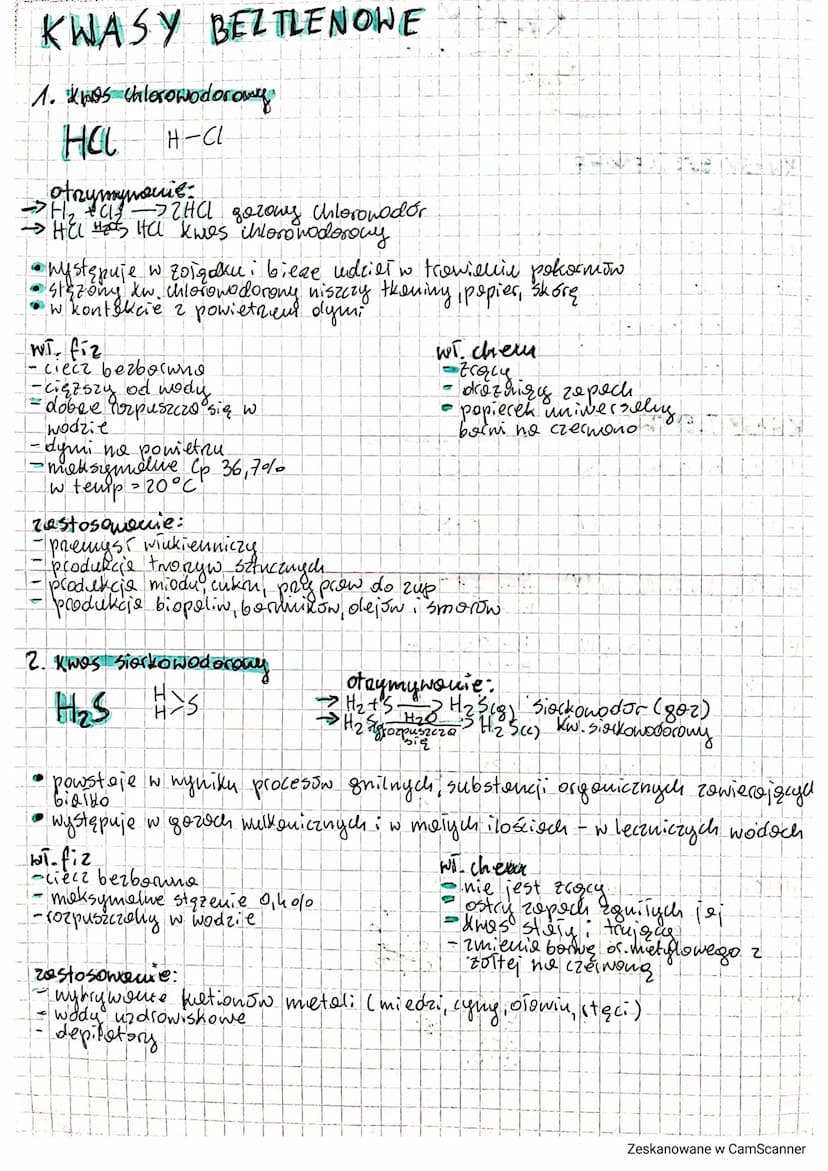 KWASY BEZTLENOWE
1. Kwas chlorowodorowy
HCl H-Cl
otrzymywanie:
→ H₂ + Cl₂ → 2HCl gazowy chlorowodór
→ HCl H₂O→ HCl kwas chlorowodorowy
• występuje w żołądku i bierze udział w trawieniu pokarmów
• stężony kw. chlorowodorowy niszczy tkaniny, papier, skórę
• w kontakcie z powietrzem dymi
wł. fiz
- ciecz bezbarwna
- cięższy od wody
- dobrze rozpuszcza się w
wodzie
- dymi na powietrzu
- maksymalne Cp 36,7%
w temp = 20°C
wł. chem
- żrący
- drażniący zapach
- papierek uniwersalny
barwi na czerwono
zastosowanie:
- przemysł włókienniczy
- produkcja tworzyw sztucznych
- produkcja miodu, cukru, przypraw do zup
- produkcja biopaliw, barwników, olejów i smarów
2. Kwas siarkowodorowy
H₂S H H >S
otrzymywanie:
→ H₂ + S → H₂S(g) siarkowodór (gaz)
→ H₂S(g) H₂O rozpuszcza się → H₂S(c) kw. siarkowodorowy
• powstaje w wyniku procesów gnilnych, substancji organicznych zawierających
białko
• występuje w gazach wulkanicznych i w małych ilościach - w leczniczych wodach
wł. fiz
- ciecz bezbarwna
- maksymalne stężenie 0,4%
- rozpuszczalny w wodzie
wł. chem
- nie jest żrący
- ostry zapach zgniłych jaj
- kwas słaby i trujący
- zmienia barwę or. metylowego z
żółtej na czerwoną
zastosowanie:
- wykrywanie kationów metali (miedzi, cyny, ołowiu, rtęci)
- wody uzdrowiskowe
- depilatory
Zeskanowane w CamScanner